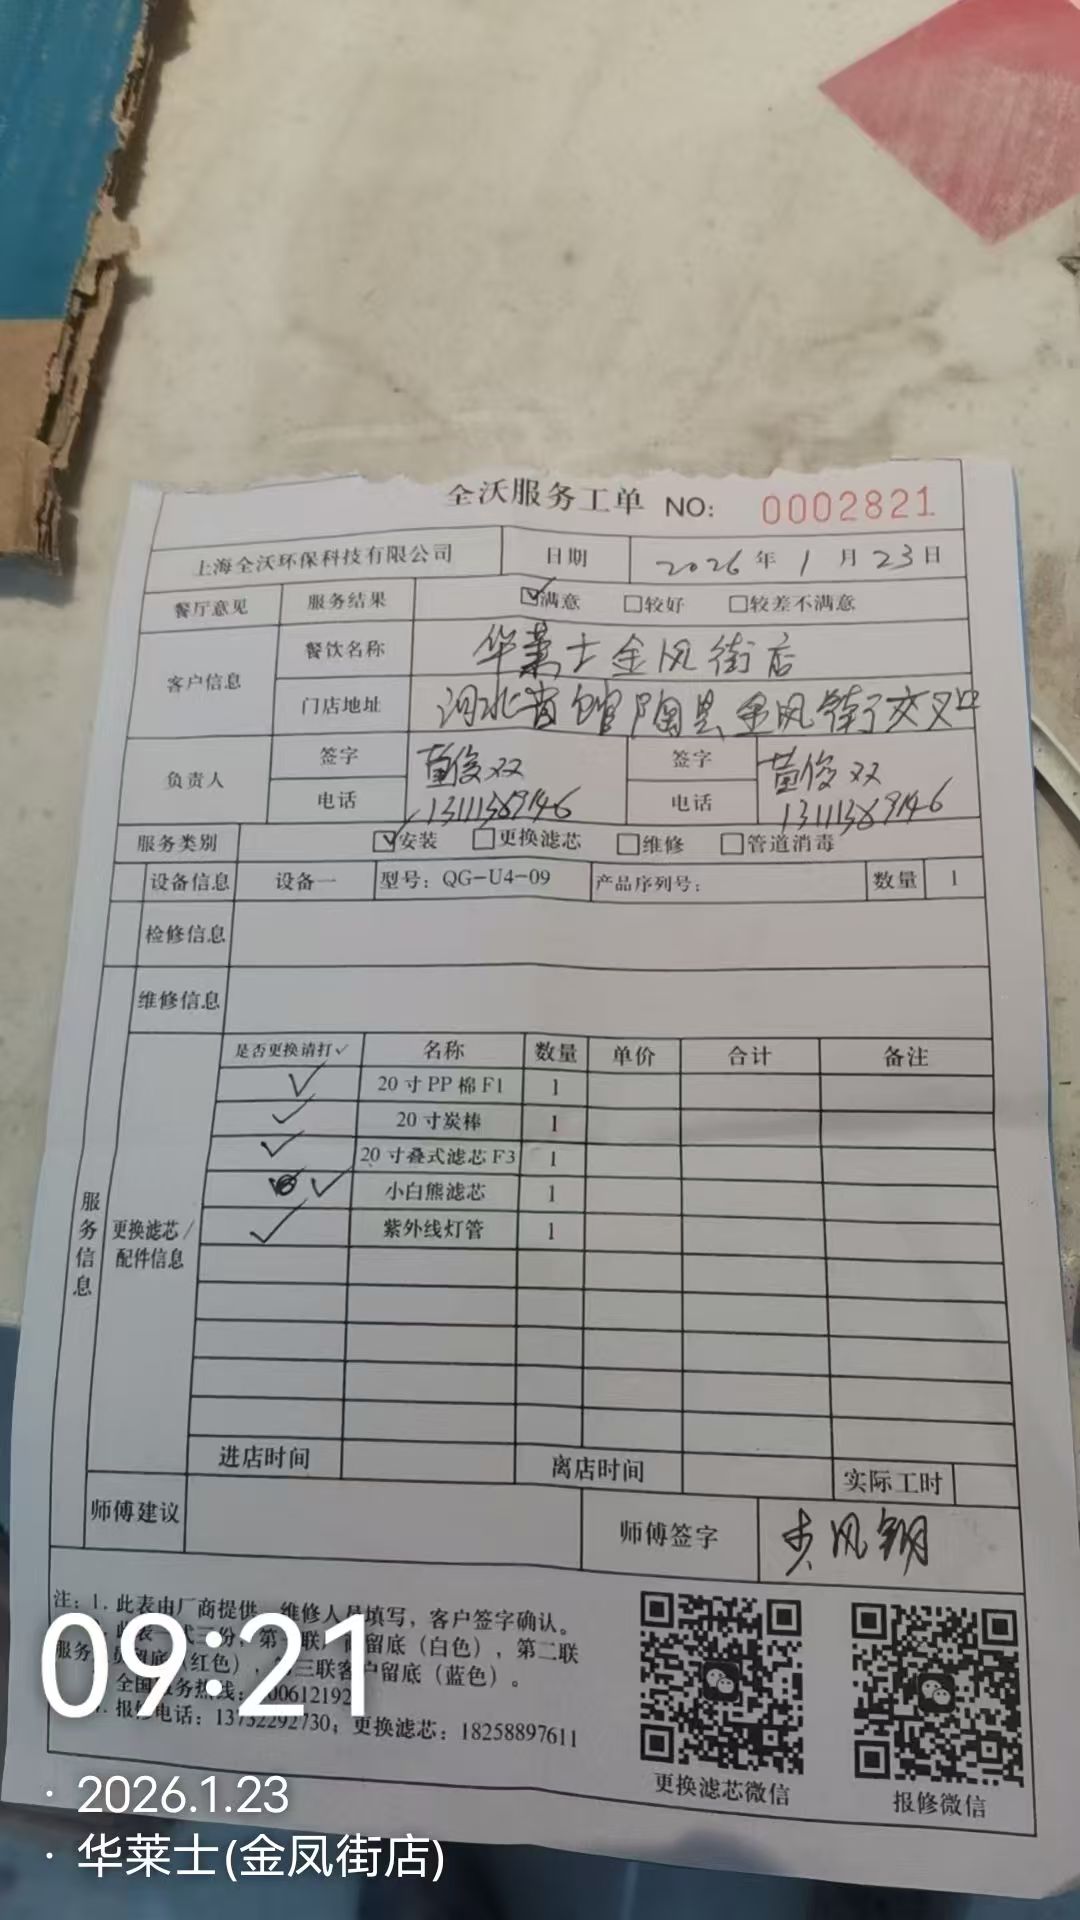 全沃服务工单 NO: 0002821
上海全沃环保科技有限公司 日期 2026 年 1 月 23 日
餐厅意见 服务结果 ☑满意 □较好 □较差不满意
客户信息 餐饮名称 华莱士金凤街店
门店地址 河北省馆陶县金凤街交叉口
负责人 签字 董俊双 签字 董俊双
电话 13111389146 电话 13111389146
服务类别 ☑安装 □更换滤芯 □维修 □管道消毒
设备信息 设备一 型号: QG-U4-09 产品序列号: 数量 1
检修信息
维修信息
是否更换请打✓ 名称 数量 单价 合计 备注
✓ 20寸PP棉F1 1
✓ 20寸炭棒 1
✓ 20寸叠式滤芯F3 1
✓ 小白熊滤芯 1
✓ 紫外线灯管 1
服务信息
更换滤芯/
配件信息
进店时间 离店时间 实际工时
师傅建议 师傅签字
注: 1. 此表由厂商提供 维修人员填写, 客户签字确认。
此表一式三份, 第一联 留底 (白色), 第二联
服务 留底 (红色), 第三联客户留底 (蓝色)。
全国服务热线:
报修电话: 13732292730; 更换滤芯: 18258897611
更换滤芯微信 报修微信
09:21
· 2026.1.23
· 华莱士(金凤街店)